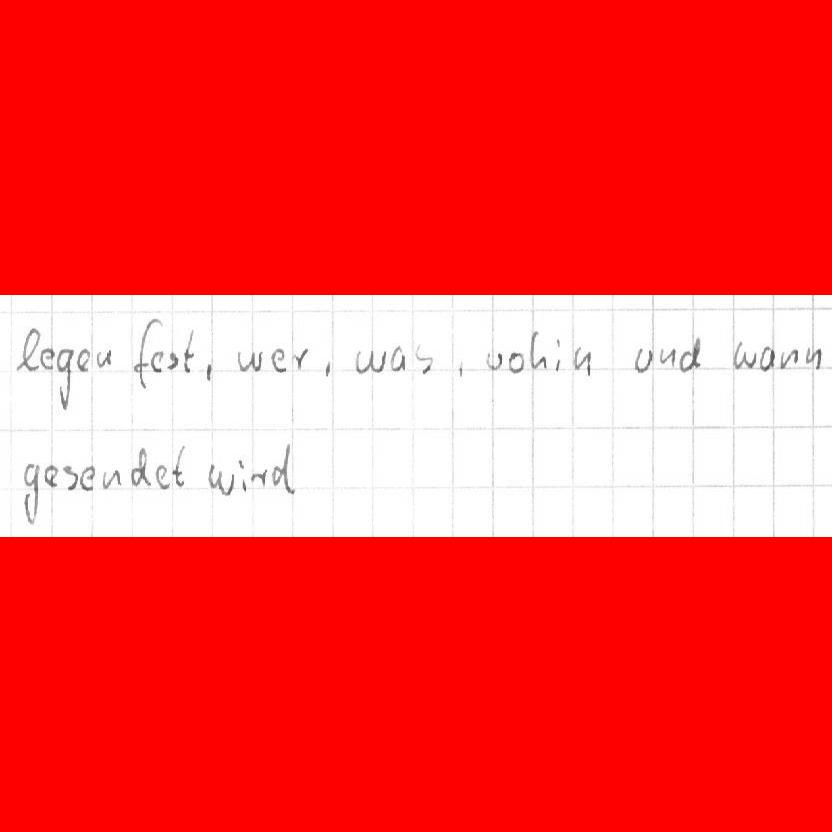 legen fest, wer, was, wohin und wann
gesendet wird